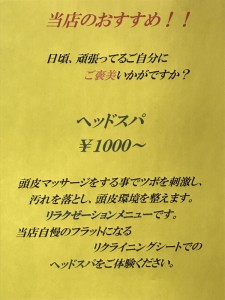 当店のおすすめ！！
日頃、頑張ってるご自分に
ご褒美いかがですか？
ヘッドスパ
￥1000～
頭皮マッサージをする事でツボを刺激し、
汚れを落とし、頭皮環境を整えます。
リラクゼーションメニューです。
当店自慢のフラットになる
リクライニングシートでの
ヘッドスパをご体験ください。